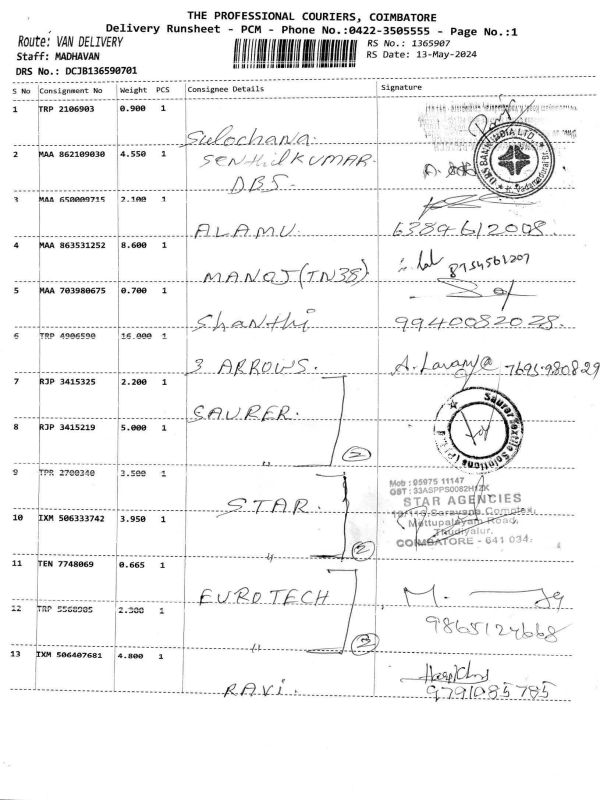 THE PROFESSIONAL COURIERS, COIMBATORE
Delivery Runsheet - PCM - Phone No.:0422-3505555 - Page No.:1
Route: VAN DELIVERY
RS No.: 1365907
Staff: MADHAVAN
RS Date: 13-May-2024
DRS No.: DCJB136590701
S No Consignment No Weight PCS Consignee Details Signature
1 TRP 2106903 0.900 1
Sulochana.
2 MAA 862109030 4.550 1
SENthilKUMAR.
DBS.
DBS BANK INDIA LTD
3 MAA 650009715 2.100 1
ALAMU. 6384612008.
4 MAA 863531252 8.600 1
MANOJ (TN38). 8754561207
5 MAA 703980675 0.700 1
Shanthi 9940082028.
6 TRP 4906590 16.000 1
3 ARROWS. 7695980829
7 RJP 3415325 2.200 1
SAURER.
Saurer Textile Solutions (P) L
8 RJP 3415219 5.000 1
" 2
9 TPR 2700340 3.500 1
STAR.
Mob : 95975 11147
GST : 33ASPPS0082H1ZK
STAR AGENCIES
Saravana Complex,
Mettupalayam Road,
Thudiyalur,
COIMBATORE - 641 034.
10 IXM 506333742 3.950 1
" 2
11 TEN 7748069 0.665 1
EUROTECH M.
12 TRP 5568905 2.300 1
9865124668
" 2
13 IXM 506407681 4.800 1
RAVi. 9791085785